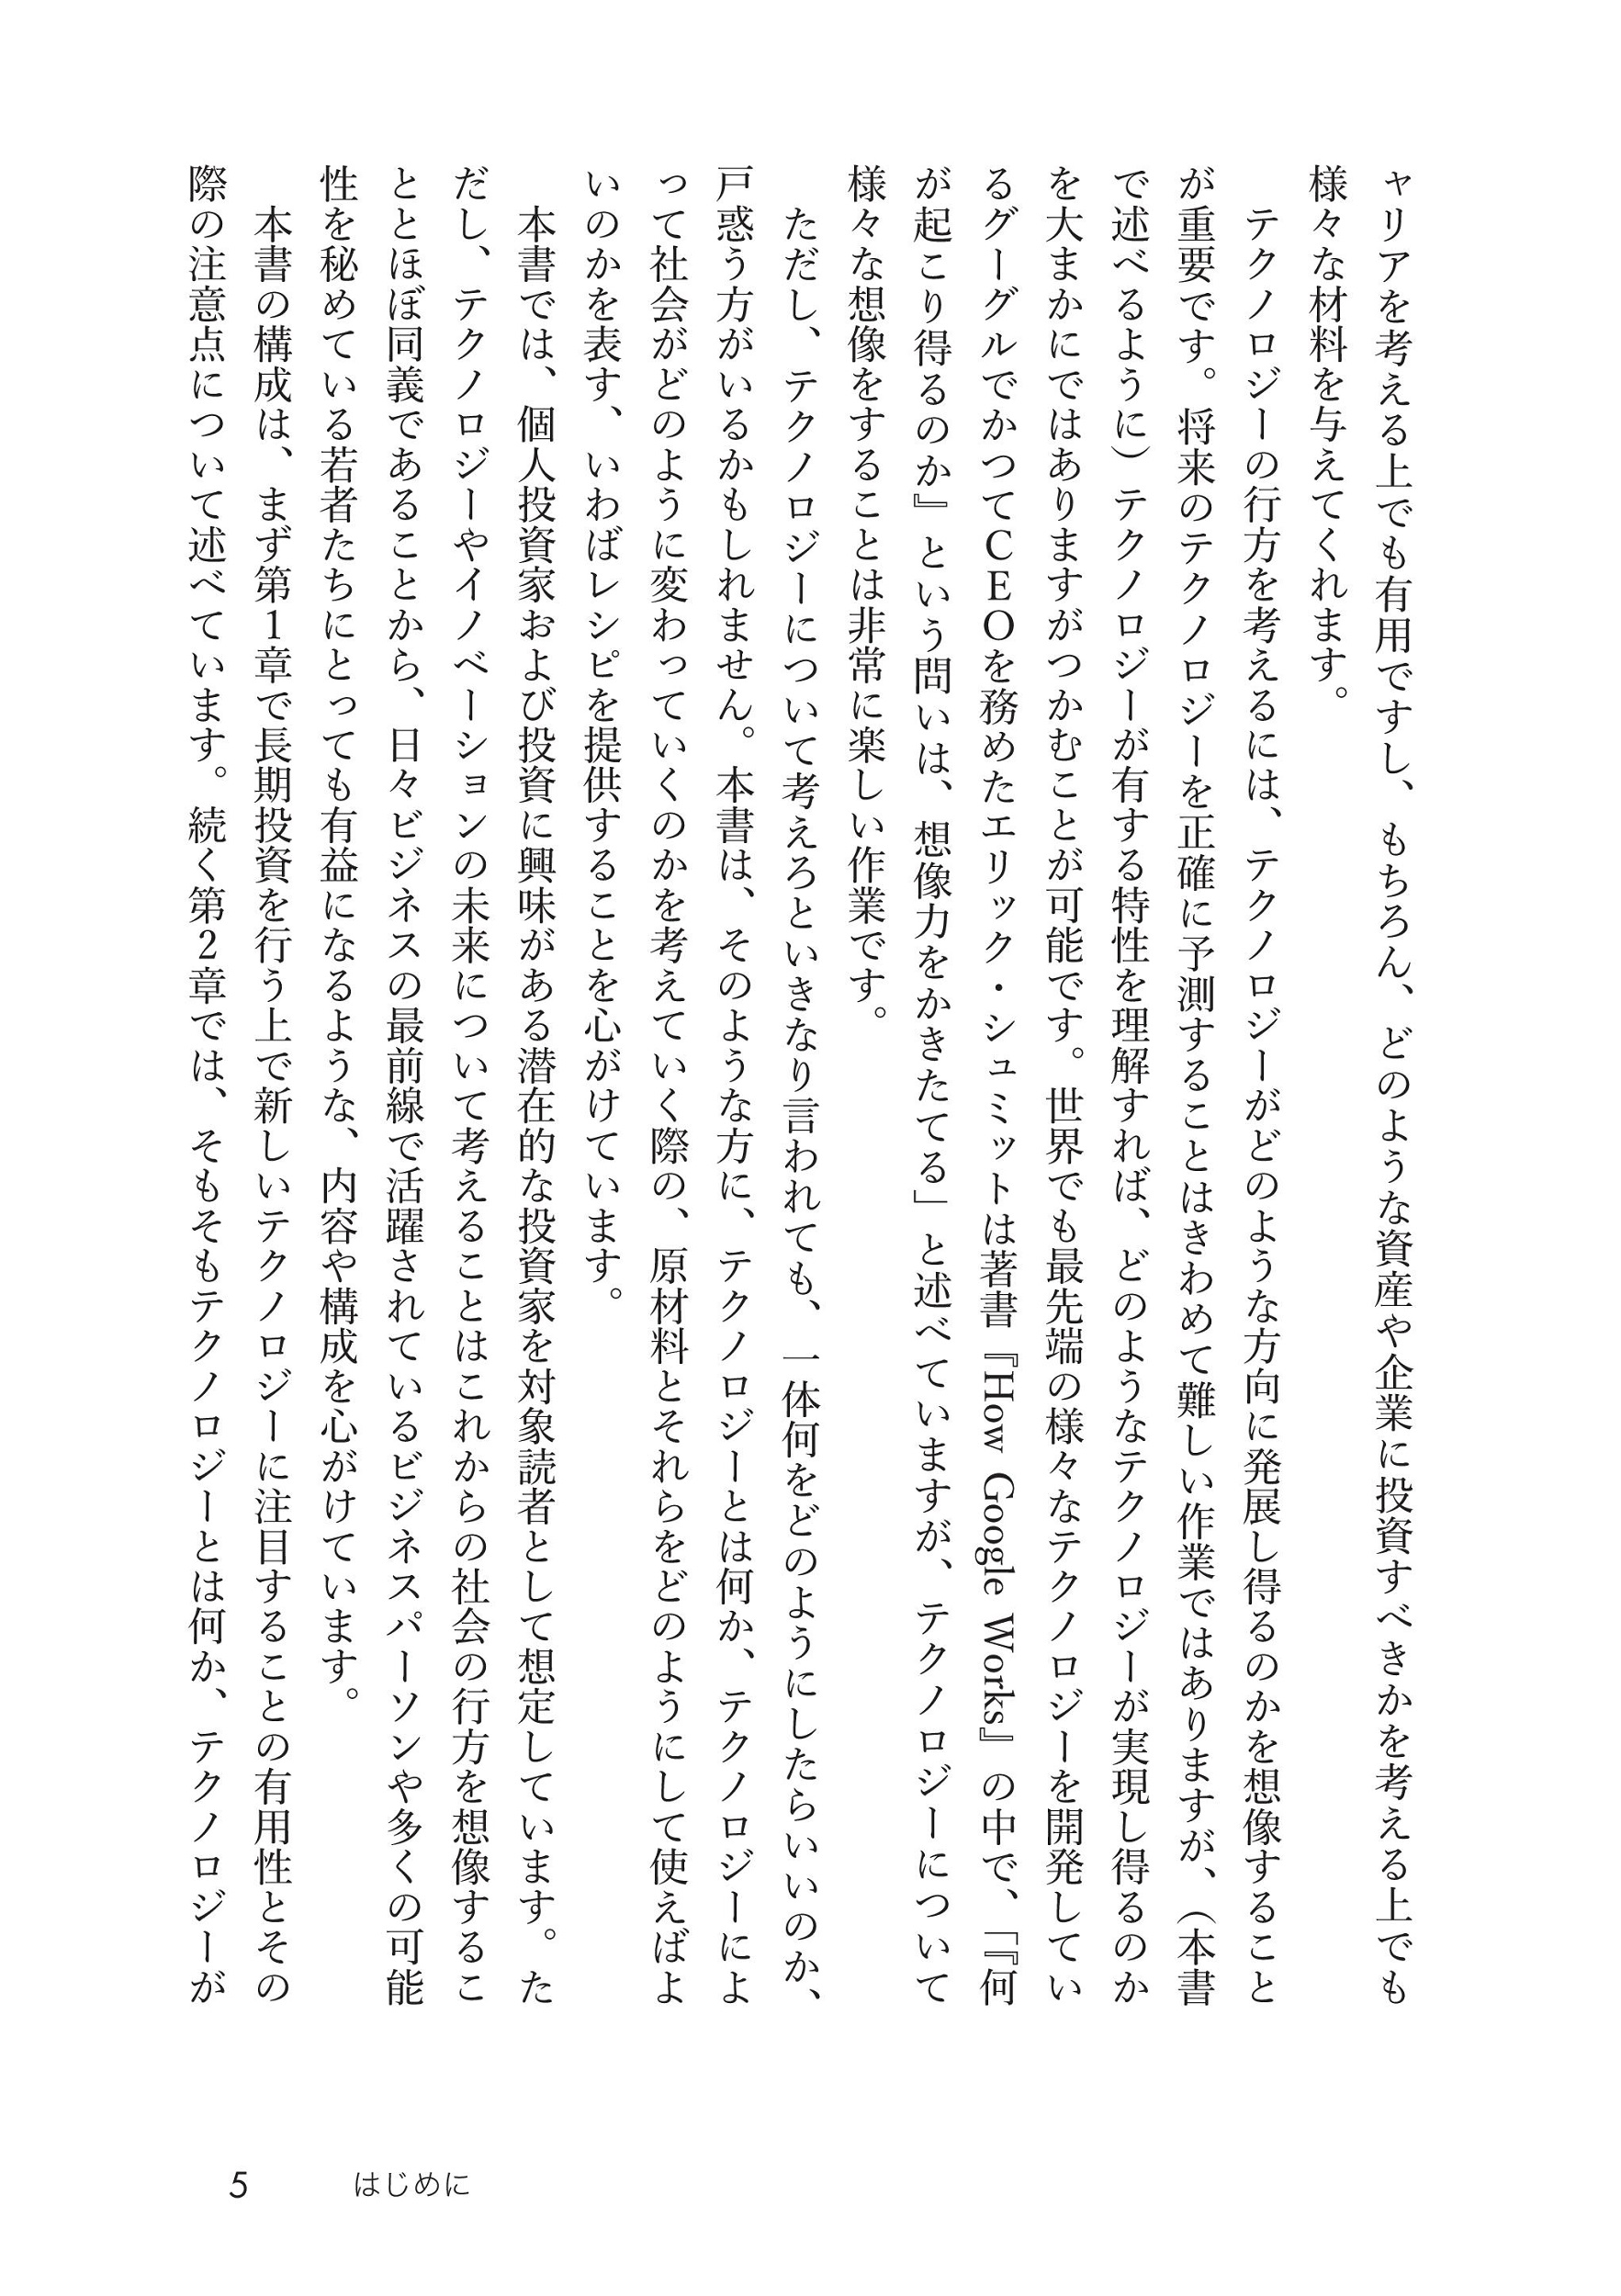 ャリアを考える上でも有用ですし、もちろん、どのような資産や企業に投資すべきかを考える上でも
様々な材料を与えてくれます。
　テクノロジーの行方を考えるには、テクノロジーがどのような方向に発展し得るのかを想像すること
が重要です。将来のテクノロジーを正確に予測することはきわめて難しい作業ではありますが、（本書
で述べるように）テクノロジーが有する特性を理解すれば、どのようなテクノロジーが実現し得るのか
を大まかにではありますがつかむことが可能です。世界でも最先端の様々なテクノロジーを開発してい
るグーグルでかつてＣＥＯを務めたエリック・シュミットは著書『How Google Works』の中で、「『何
が起こり得るのか』という問いは、想像力をかきたてる」と述べていますが、テクノロジーについて
様々な想像をすることは非常に楽しい作業です。
　ただし、テクノロジーについて考えろといきなり言われても、一体何をどのようにしたらいいのか、
戸惑う方がいるかもしれません。本書は、そのような方に、テクノロジーとは何か、テクノロジーによ
って社会がどのように変わっていくのかを考えていく際の、原材料とそれらをどのようにして使えばよ
いのかを表す、いわばレシピを提供することを心がけています。
　本書では、個人投資家および投資に興味がある潜在的な投資家を対象読者として想定しています。た
だし、テクノロジーやイノベーションの未来について考えることはこれからの社会の行方を想像するこ
ととほぼ同義であることから、日々ビジネスの最前線で活躍されているビジネスパーソンや多くの可能
性を秘めている若者たちにとっても有益になるような、内容や構成を心がけています。
　本書の構成は、まず第１章で長期投資を行う上で新しいテクノロジーに注目することの有用性とその
際の注意点について述べています。続く第２章では、そもそもテクノロジーとは何か、テクノロジーが
5　はじめに